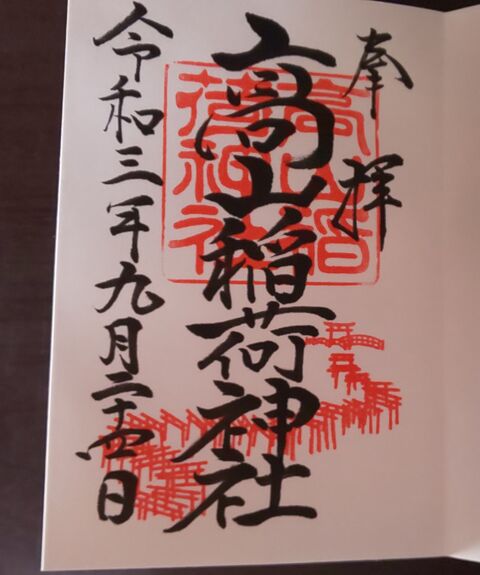 奉拝
高山稲荷神社
令和三年九月二十四日
高山稲荷神社